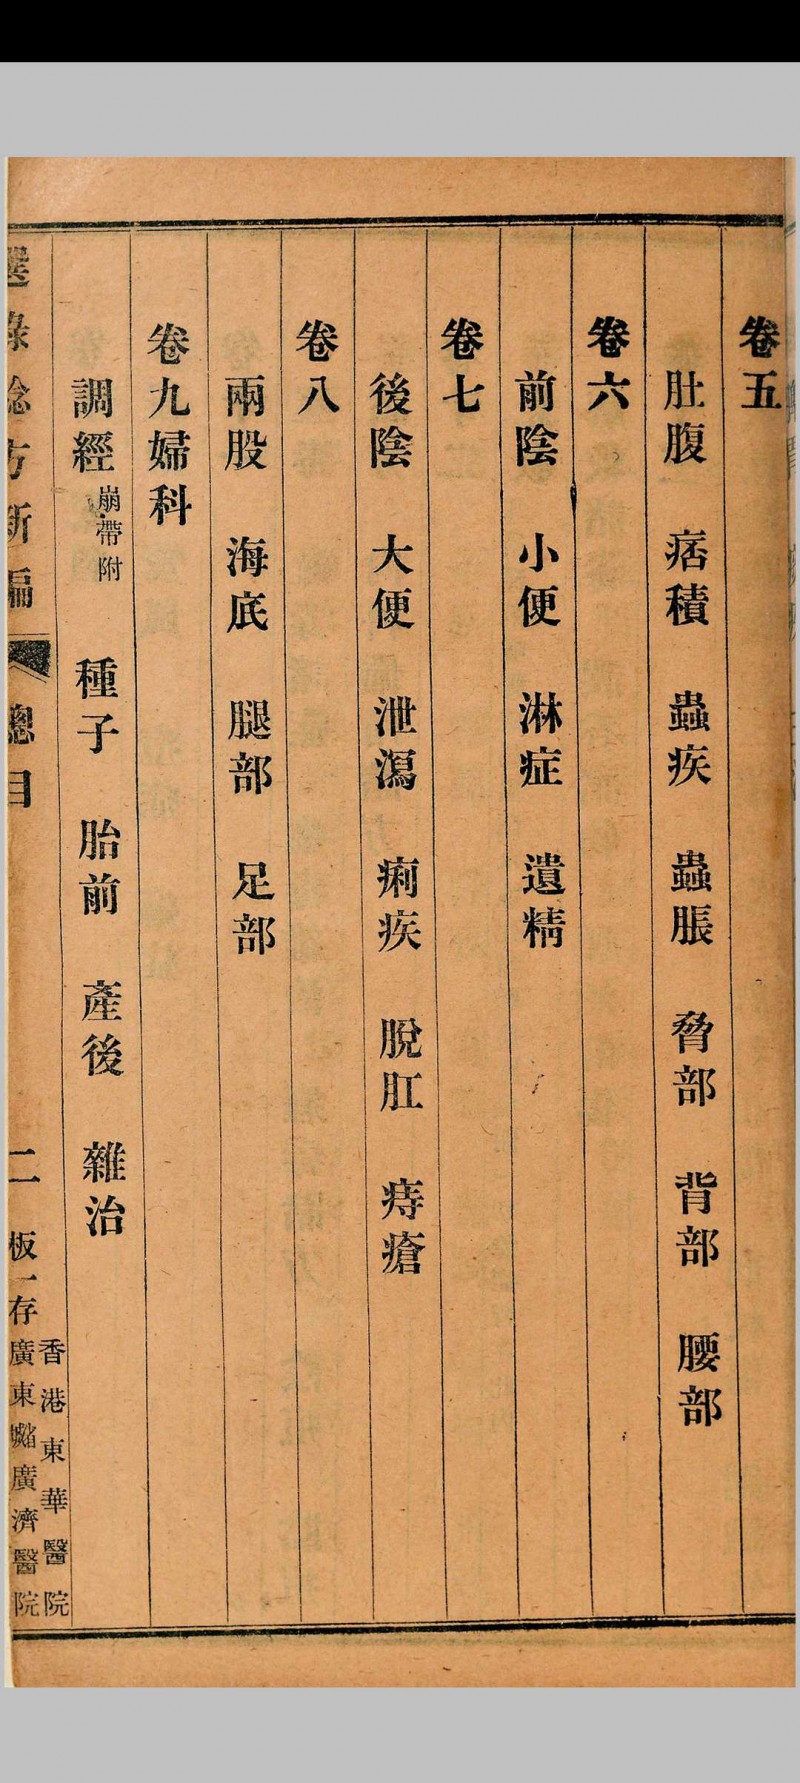 卷五
肚腹　痞積　蟲疾　蠱脹　脅部　背部　腰部
卷六
前陰　小便　淋症　遺精
卷七
後陰　大便　泄瀉　痢疾　脫肛　痔瘡
卷八
兩股　海底　腿部　足部
卷九婦科
調經崩帶附　種子　胎前　產後　雜治
選錄驗方新編　總目　二　板存
香港東華醫院
廣東
廣濟醫院